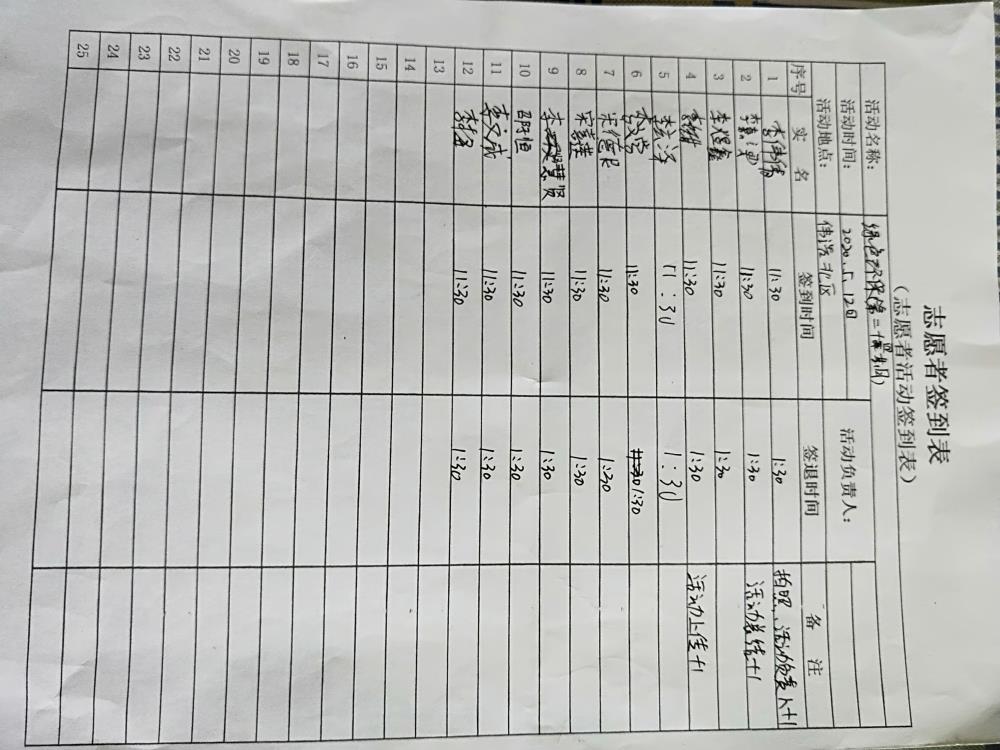 志愿者签到表
（志愿者活动签到表）
活动名称： 绿色环保（第二十四周）
活动时间： 2020.5.12日 活动负责人：
活动地点： 伟浩北区
序号 实名 签到时间 签退时间 备注
1 11:30 1:30 拍照、活动负责人+1
2 11:30 1:30 活动总结+1
3 李煜鑫 11:30 1:30
4 11:30 1:30 活动上传+1
5 11:30 1:30
6 11:30 1:30
7 宋德民 11:30 1:30
8 宋喜莲 11:30 1:30
9 李慧贤 11:30 1:30
10 邵恒 11:30 1:30
11 李文成 11:30 1:30
12 11:30 1:30
13
14
15
16
17
18
19
20
21
22
23
24
25